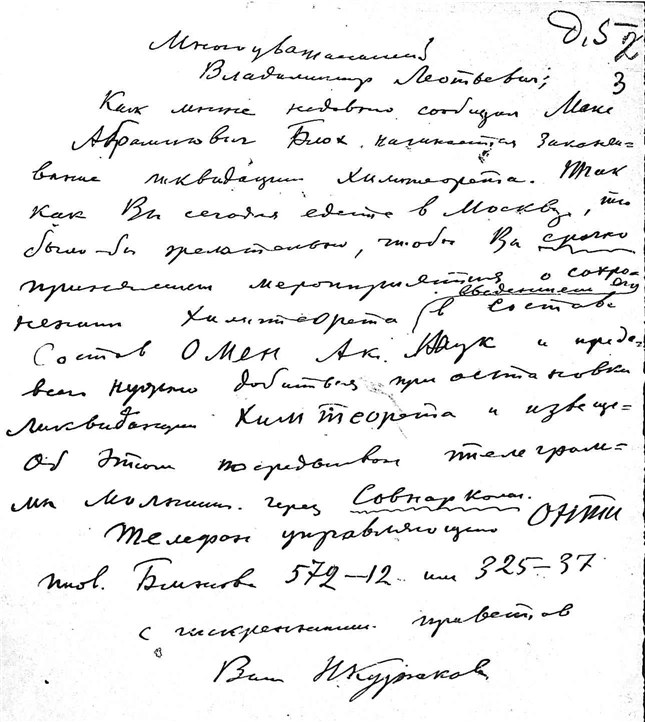 Д. 5 2
3
Многоуважаемый
Владимир Леонтьевич,
Как мне недавно сообщил Макс
Абрамович Блох, начинается закончи-
вание ликвидации Химтеорета. Так
как Вы сегодня едете в Москву, то
было-бы желательно, чтобы Вы срочно
мероприятия о сохра-
введением его
нении Химтеорета в состав
Состав ОМЕН Ак. Наук и прежде
всего нужно добиться приостановки
ликвидации Химтеорета и
Об этом посредством телеграм-
мы молнии через Совнарком.
Телефон управляющего ОНТИ
тов. 572-12 или 325-37
с искренним приветом
Ваш Н. Курнаков